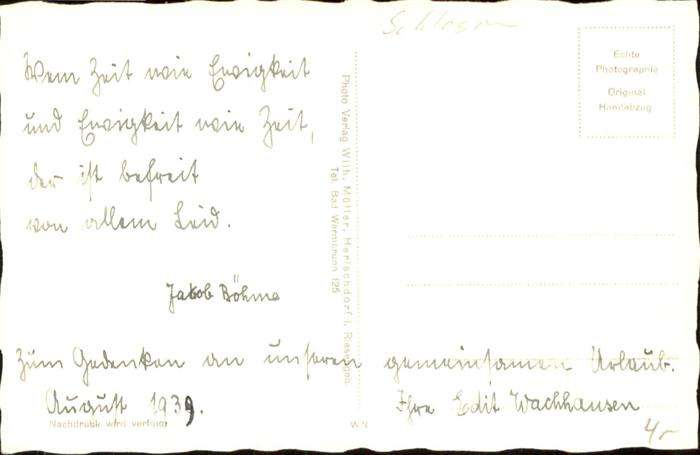 Schlesien
Wem Zeit wie Ewigkeit
und Ewigkeit wie Zeit,
der ist befreit
von allem Leid.
Jakob Böhme
Zum Gedenken an unseren gemeinsamen Urlaub.
August 1939. Ihre Edit Wachhausen
Nachdruck wird verfolgt
W.N.
4,-
Photo Verlag Wilh. Müller, Herischdorf i. Riesengeb.
Tel. Bad Warmbrunn 125
Echte
Photographie
Original
Handabzug